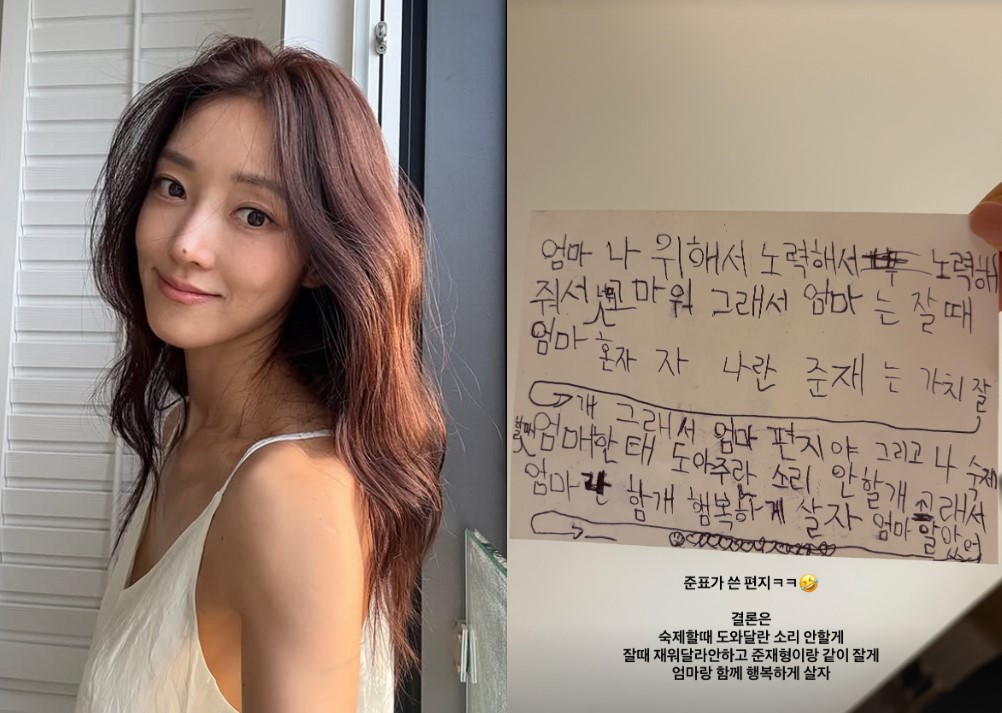 엄마 나 위해서 노력해서 노력해
줘서 고마워 그래서 엄마 는 잘때
엄마 혼자 자 나란 준재 는 가치 잘
개 그래서 엄마 편지야 그리고 나 숙제
할때 엄매한태 도아주라 소리 안할개 그래서
엄마란 함개 행복하게 살자 엄마 알았어
준표가 쓴 편지ㅋㅋ🤣
결론은
숙제할때 도와달란 소리 안할게
잘때 재워달라안하고 준재형이랑 같이 잘게
엄마랑 함께 행복하게 살자